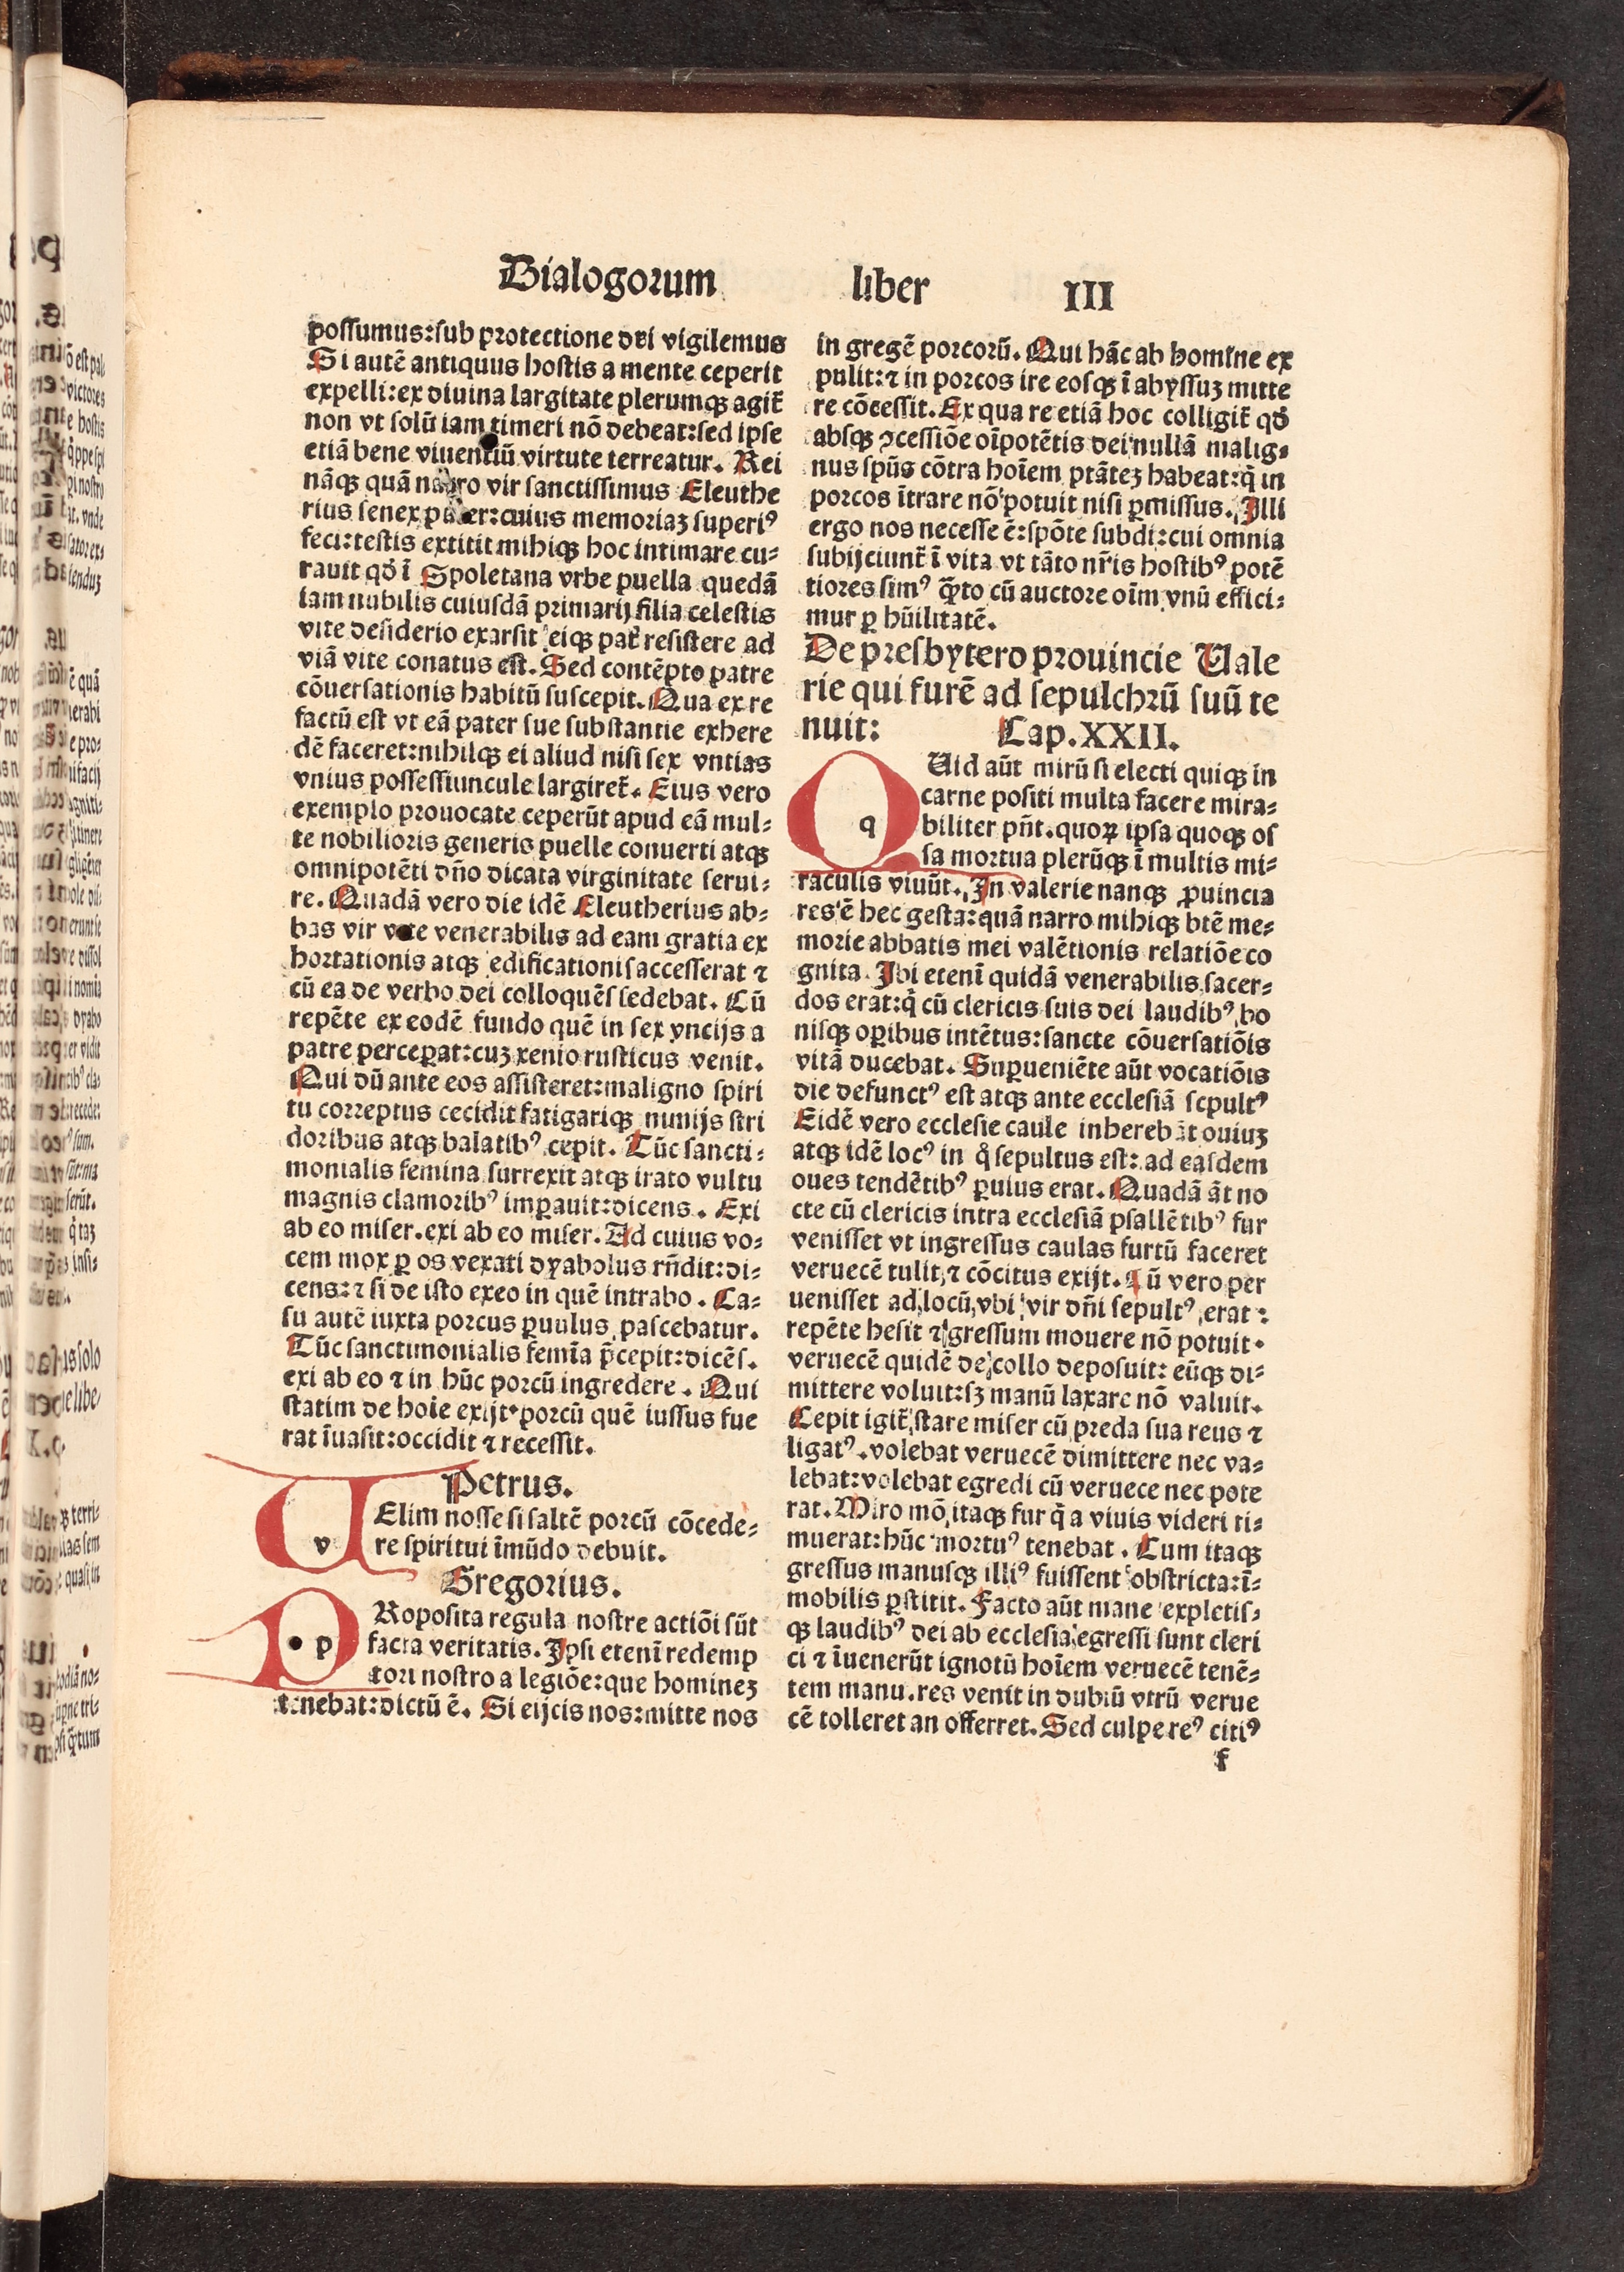 Dialogorum liber III
possumus:sub protectione dei vigilemus
Si autē antiquus hostis a mente ceperit
expelli:ex diuina largitate plerumqꝫ agit᷑
non vt solū iam timeri nō debeat:sed ipse
etiā bene viuentiū virtute terreatur. Rei
nāqꝫ quā narro vir sanctissimus Eleuthe
rius senex pater:cuius memoriaꝫ superiꝰ
feci:testis extitit mihiqꝫ hoc intimare cu⸗
rauit qđ ī Spoletana vrbe puella quedā
iam nubilis cuiusdā primarij filia celestis
vite desiderio exarsit eiqꝫ pat᷑ resistere ad
viā vite conatus est. Sed contēpto patre
cōuersationis habitū suscepit. Qua ex re
factū est vt eā pater sue substantie exhere
dē faceret:nihilqꝫ ei aliud nisi sex vntias
vnius possessiuncule largiret᷑. Eius vero
exemplo prouocate ceperūt apud eā mul⸗
te nobilioris generis puelle conuerti atqꝫ
omnipotēti dño dicata virginitate serui⸗
re. Quadā vero die idē Eleutherius ab⸗
bas vir vite venerabilis ad eam gratia ex
hortationis atqꝫ edificationis accesserat ⁊
cū ea de verbo dei colloquēs sedebat. Cū
repēte ex eodē fundo quē in sex vncijs a
patre perceꝑat:cuꝫ xenio rusticus venit.
Qui dū ante eos assisteret:maligno spiri
tu correptus cecidit fatigariqꝫ nimijs stri
doribus atqꝫ balatibꝰ cepit. Tūc sancti⸗
monialis femina surrexit atqꝫ irato vultu
magnis clamoribꝰ imꝑauit:dicens. Exi
ab eo miser.exi ab eo miser. Ad cuius vo⸗
cem mox ꝑ os vexati dyabolus rñdit:di⸗
cens:⁊ si de isto exeo in quē intrabo. Ca⸗
su autē iuxta porcus ꝑuulus pascebatur.
Tūc sanctimonialis femīa p̄cepit:dicēs.
exi ab eo ⁊ in hūc porcū ingredere. Qui
statim de hoie exijt.porcū quē iussus fue
rat īuasit:occidit ⁊ recessit.
Petrus.
v Elim nosse si saltē porcū cōcede⸗
re spiritui īmūdo debuit.
Gregorius.
p Roposita regula nostre actiōi sūt
facta veritatis. Ipsi etenī redemp
tori nostro a legiōe:que hominеꝫ
tenebat:dictū ē. Si eijcis nos:mitte nos
in gregē porcorū. Qui hāc ab homine ex
pulit:⁊ in porcos ire eosqꝫ ī abyssuꝫ mitte
re cōcessit. Ex qua re etiā hoc colligit᷑ qđ
absqꝫ ꝯcessiōe oīpotētis dei nullā malig⸗
nus spūs cōtra hoīem ptāteꝫ habeat:q̇ in
porcos ītrare nō potuit nisi ꝑmissus. Illi
ergo nos necesse ē:spōte subdi:cui omnia
subijciunt᷑ ī vita vt tāto nr̄is hostibꝰ potē
tiores simꝰ q̄to cū auctore oīm vnū effici⸗
mur ꝑ hūilitatē.
De presbytero prouincie Uale
rie qui furē ad sepulchrū suū te
nuit: Cap.XXII.
q Uid aūt mirū si electi quiqꝫ in
carne positi multa facere mira⸗
biliter pñt.quoꝝ ipsa quoqꝫ os
sa mortua plerūqꝫ ī multis mi⸗
raculis viuūt. In valerie nanqꝫ ꝓuincia
res ē hec gesta:quā narro mihiqꝫ btē me⸗
morie abbatis mei valētionis relatiōe co
gnita. Ibi etenī quidā venerabilis sacer⸗
dos erat:q̇ cū clericis suis dei laudibꝰ bo
nisqꝫ oꝑibus intētus:sancte cōuersatiōis
vitā ducebat. Suꝑueniēte aūt vocatiōis
die defunctꝰ est atqꝫ ante ecclesiā sepultꝰ
Eidē vero ecclesie caule inherebāt ouiuꝫ
atqꝫ idē locꝰ in q̊ sepultus est: ad easdem
oues tendētibꝰ ꝑuius erat. Quadā āt no
cte cū clericis intra ecclesiā psallētibꝰ fur
venisset vt ingressus caulas furtū faceret
veruecē tulit ⁊ cōcitus exijt. Cū vero per
uenisset ad locū vbi vir dñi sepultꝰ erat:
repēte hesit ⁊ gressum mouere nō potuit.
veruecē quidē de collo deposuit: eūqꝫ di⸗
mittere voluit:sꝫ manū laxare nō valuit.
Cepit igit᷑ stare miser cū preda sua reus ⁊
ligatꝰ.volebat veruecē dimittere nec va⸗
lebat:volebat egredi cū veruece nec pote
rat. Miro mō itaqꝫ fur q̇ a viuis videri ti⸗
muerat:hūc mortuꝰ tenebat. Cum itaqꝫ
gressus manusqꝫ illiꝰ fuissent obstricta:ī⸗
mobilis ꝑstitit. Facto aūt mane expletis⸗
qꝫ laudibꝰ dei ab ecclesia egressi sunt cleri
ci ⁊ īuenerūt ignotū hoīem veruecē tenē⸗
tem manu.res venit in dubiū vtrū verue
cē tolleret an offerret. Sed culpe reꝰ citiꝰ
f